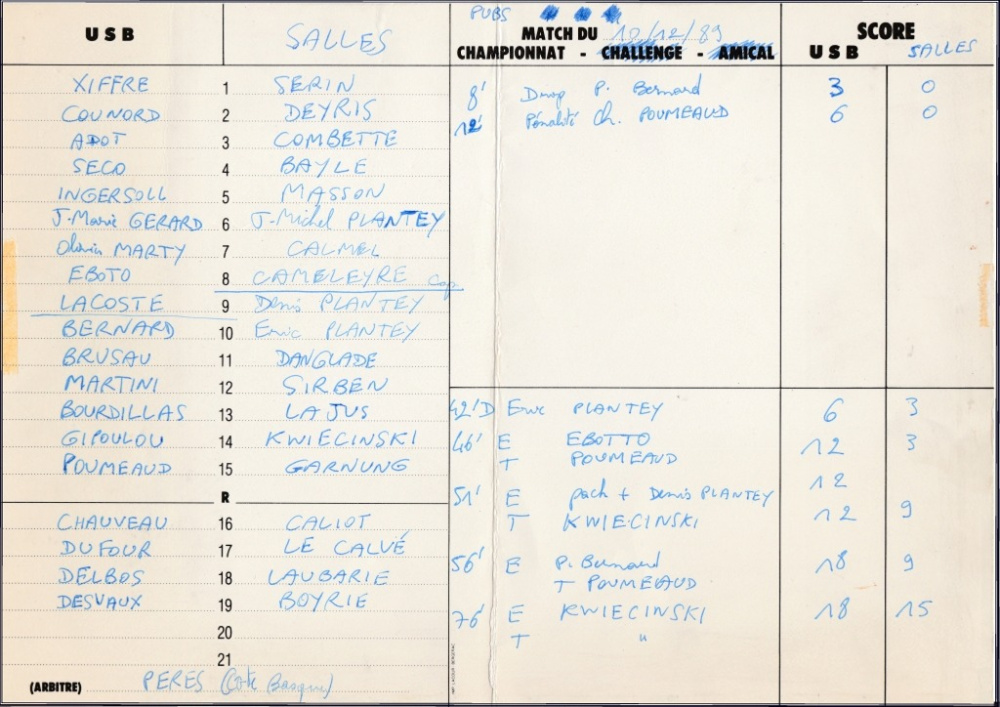 PUBS
USB SALLES MATCH DU 10/12/89 SCORE
CHAMPIONNAT - CHALLENGE - AMICAL USB SALLES
XIFFRE 1 SERIN
COUNORD 2 DEYRIS
ADOT 3 COMBETTE
SECO 4 BAYLE
INGERSOLL 5 MASSON
J-Marie GERARD 6 J-Michel PLANTEY
Olivier MARTY 7 CALMEL
EBOTO 8 CAMELEYRE cap
LACOSTE 9 Denis PLANTEY
BERNARD 10 Eric PLANTEY
BRUSAU 11 DANGLADE
MARTINI 12 SIRBEN
BOURDILLAS 13 LAJUS
GIPOULOU 14 KWIECINSKI
POUMEAUD 15 GARNUNG
R
CHAUVEAU 16 CALIOT
DUFOUR 17 LE CALVÉ
DELBOS 18 LAUBARIE
DESVAUX 19 BOYRIE
20
21
(ARBITRE) PERES (Cote Basque)
8' Drop P. Bernard 3 0
12' Pénalité Ch. POUMEAUD 6 0
42' D Eric PLANTEY 6 3
46' E EBOTTO 12 3
T POUMEAUD
51' E pack + Denis PLANTEY 12
T KWIECINSKI 12 9
56' E P. Bernard 18 9
T POUMEAUD
76' E KWIECINSKI 18 15
T "